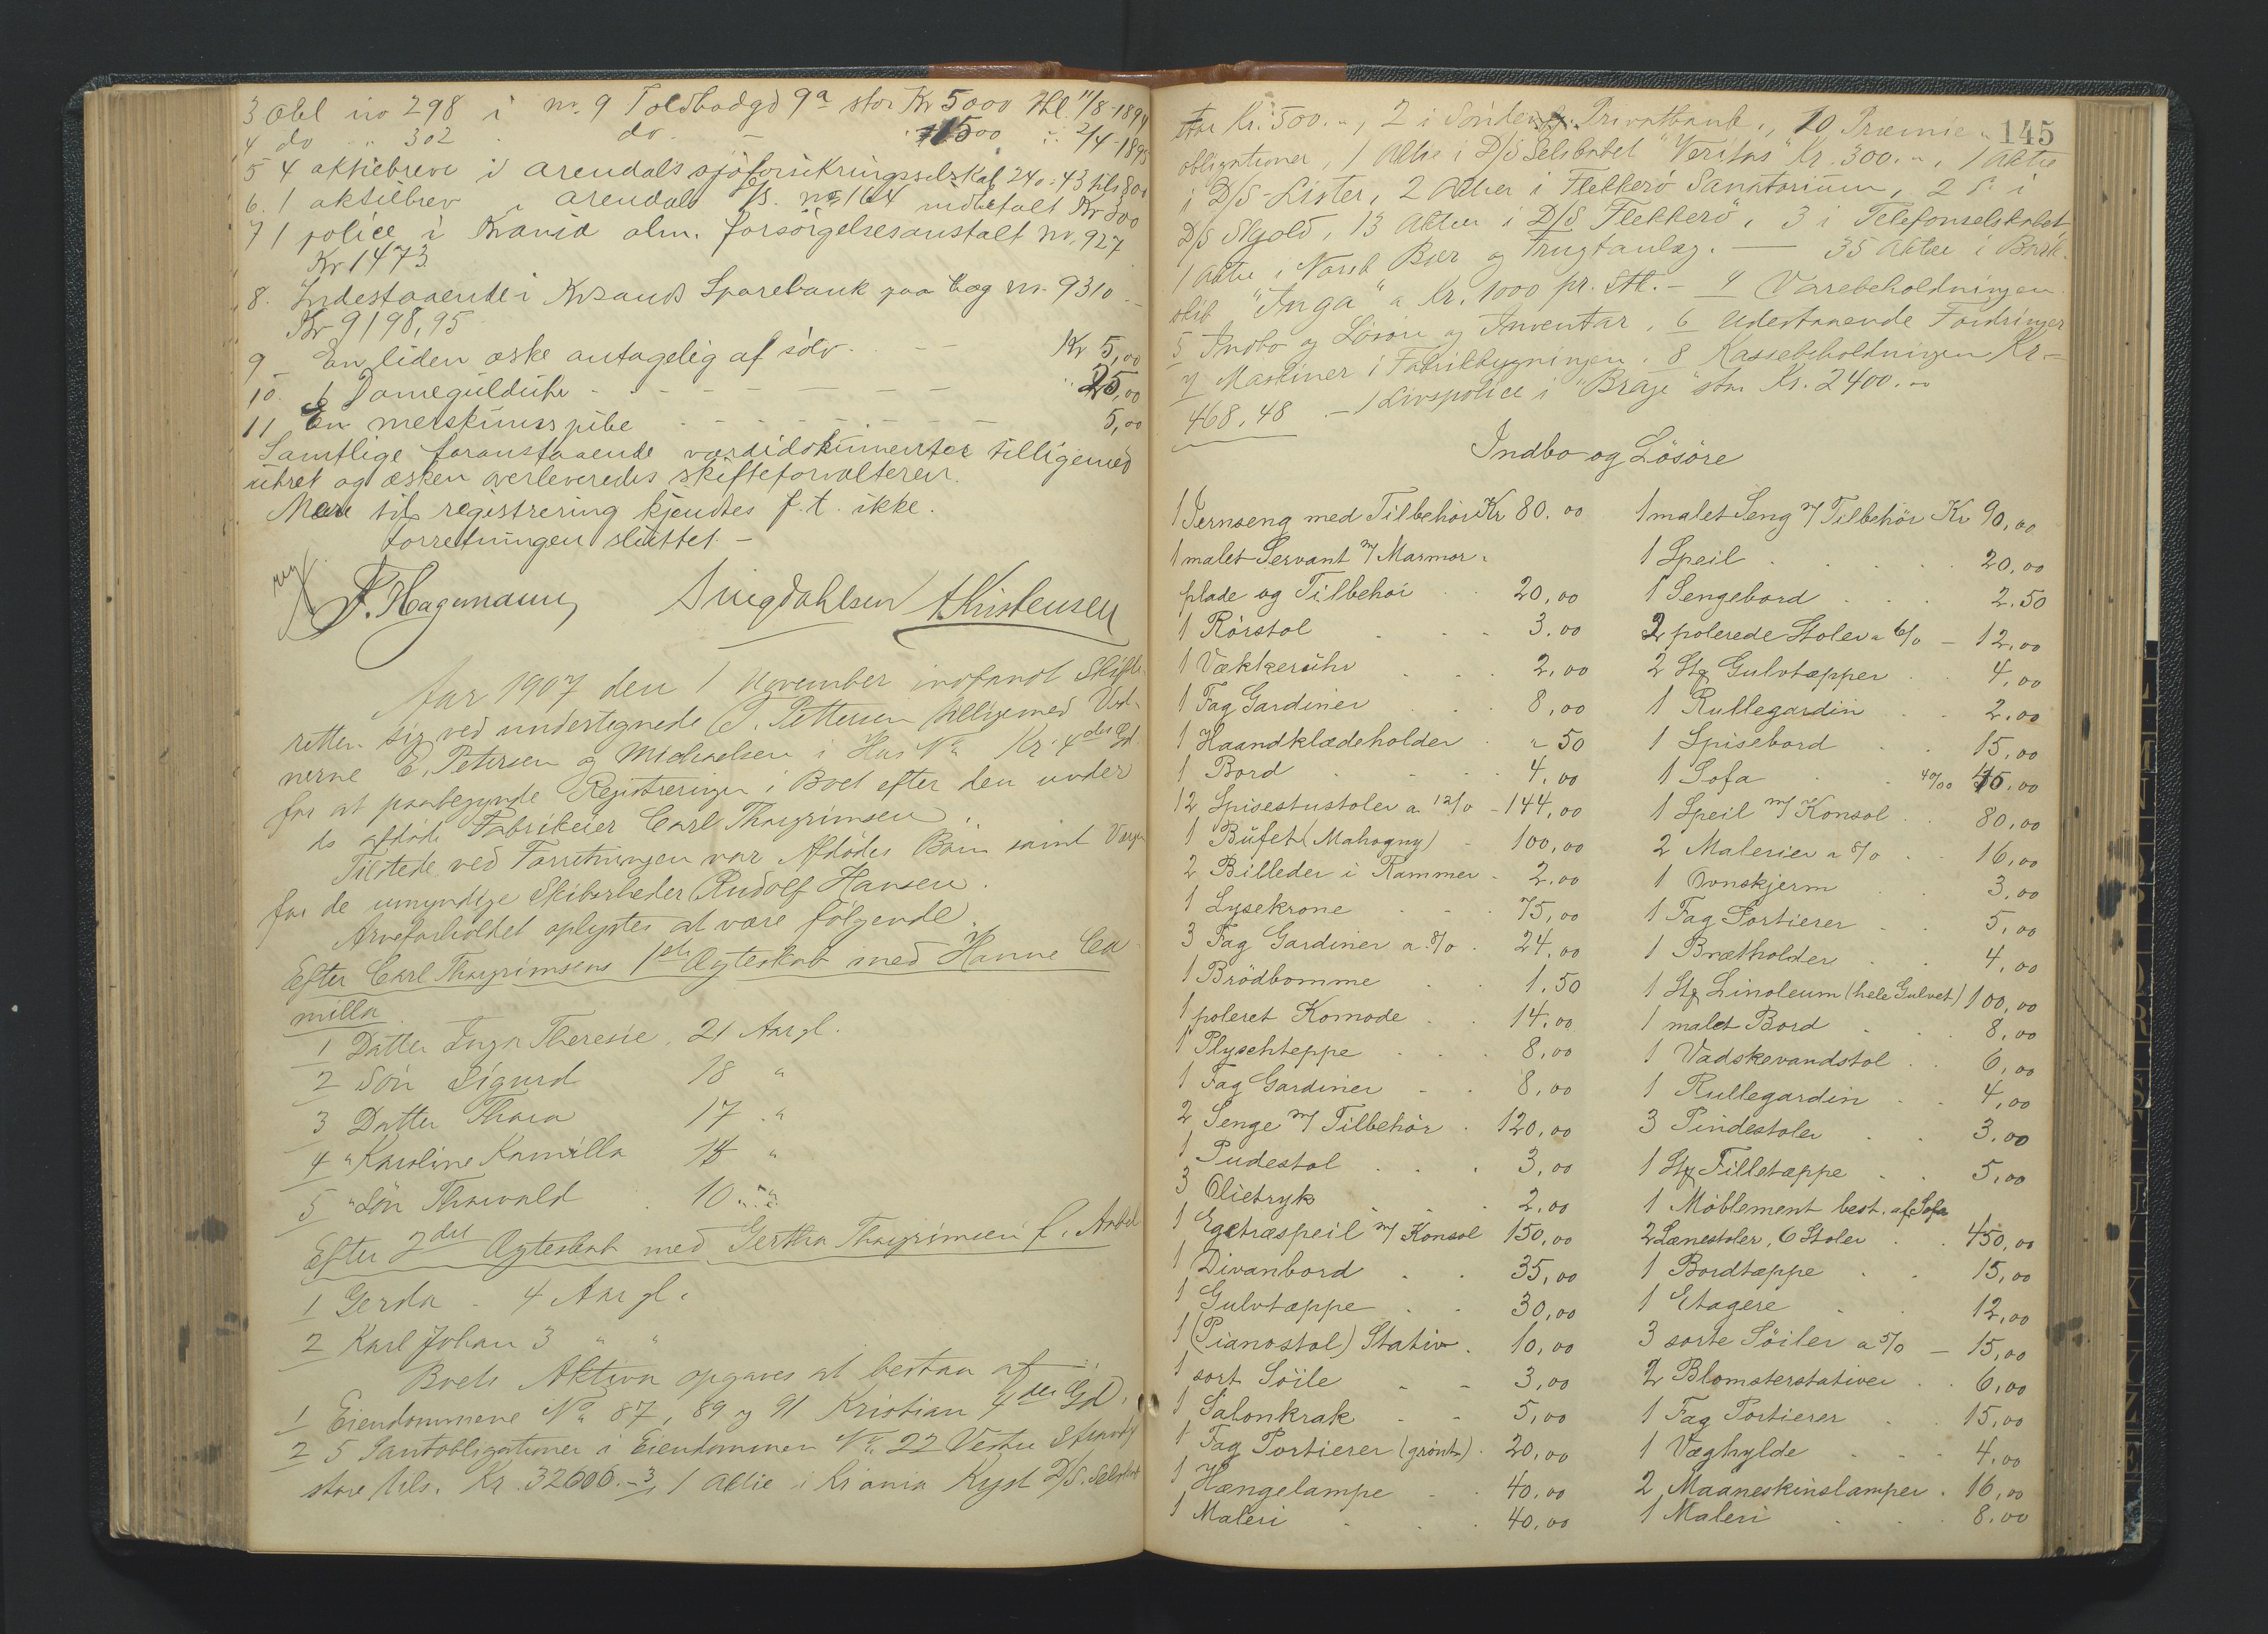 3 Obl no 298 i no. 9 Toldbodgd 9a stor Kr 5000 thl. 11/8-1894
4 do " 302 do. 1500 " 2/4-1895
5 4 aktiebreve i Arendals sjøforsikringsselskab 240-43 tils 800
6. 1 aktiebrev i Arendals no 164 indbetalt Kr 300
7 1 police i Krania alm. forsørgelsesanstalt no. 927
Kr 1473.
8. Indestaaende i Krsands Sparebank paa bog no. 9310
Kr 9198,95
9 En liden æske antagelig af sølv. Kr 5,00
10. 1 Dameguldur " 25,00
11 En merskumspibe 5,00
Samtlige foranstaaende værdidokumenter tilligemed
uhret og æsken overleveredes skifteforvalteren.
Mere til registrering kjendtes f. t. ikke.
Forretningen sluttet. -
F. Hagemann Singdahlsen A Kristensen
Aar 1907 den 1 November indfandt Skifte-
retten sig ved undertegnede J. Pettersen tilligemed Vid-
nerne E. Petersen og Michaelsen i Hus No Kr. 4des Gd.
for at paabegynde Registreringen i Boet efter den under
ds afdøde Fabrikeier Carl Thorgrimsen.
Tilstede ved Forretningen var Afdødes Børn samt Værge
for de umyndige Skibsreder Rudolf Hansen.
Arveforholdet oplystes at være følgende.
Efter Carl Thorgrimsens 1ste Ægteskab med Hanne Ca
milla
1 Datter Inga Theresie, 21 Aar gl.
2 Søn Sigurd 18 "
3 Datter Thora 17 "
4 " Karoline Kamilla 14 "
5 " Søn Thorvald 10 "
Efter 2det Ægteskab med Gertha Thorgrimsen f.
1 Gerda - 4 Aar gl.
2 Karl Johan 3 " "
Boets Aktiva opgaves at bestaa af
1 Eiendommene No 87, 89 og 91 Kristian 4des Gd.
2 5 Pantobligationer i Eiendommen No 22 Vestre Strandg
store tils. Kr. 32000.- 3, 1 Aktie i Kr ania Kyst D/S. Selskab
145
stor Kr. 500.-, 2 i Søndenf. Privatbank, 10 Præmie-
obligationer, 1 Aktie i D/S Selskabet "Veritas" Kr. 300.-, 1 Aktie
i D/S Lister, 2 Aktier i Flekkerø Sanatorium, 2 i
D/S Skjold, 13 Aktier i D/S Flekkerø, 3 i Telefonselskabet
1 Aktie i Norsk Bær og Frugtanlæg. - 35 Aktier i Bark-
skib "Inga" a Kr. 1000 pr. Stk. - 4 Varebeholdningen
5 Indbo og Løsøre og Inventar, 6 Udestaaende Fordringer
7 Maskiner i Fabrikbygningen. 8 Kassebeholdningen Kr-
468,48 - 1 Livspolice i "Brage" stor Kr. 2400.-
Indbo og Løsøre
1 Jernseng med Tilbehør Kr 80.00
1 malet Servant m/ Marmor-
plade og Tilbehør 20,00
1 Rørstol 3.00
1 Vækkeruhr 2,00
1 Fag Gardiner 8,00
1 Haandklædeholder " 50
1 Bord 4,00
12 Spisestustoler a 12/0 - 144,00
1 Bufet (Mahogny) 100,00
2 Billeder i Rammer 2.00
1 Lysekrone 75,00
3 Fag Gardiner a 8/0 24,00
1 Brødbomme 1.50
1 poleret Komode 14.00
1 Plyschteppe 8,00
1 Fag Gardiner 8,00
2 Senge m/ Tilbehør 120,00
1 Pudestol 3,00
3 Olietryk 2,00
1 Egetræspeil m/ Konsol 150,00
1 Divanbord 35,00
1 Gulvtæppe 30,00
1 (Pianostol) Stativ 10,00
1 sort Söile 3,00
1 Salonkrak 5,00
1 Fag Portierer (grønt) 20,00
1 Hængelampe 40,00
1 Maleri 40,00
1 malet Seng m/ Tilbehør Kr 90,00
1 Speil 20,00
1 Sengebord 2.50
2 polerede Stoler a 6/0 - 12,00
2 Stk Gulvtæpper 4,00
1 Rullegardin 2.00
1 Spisebord 15,00
1 Sofa 40/00 45,00
1 Speil m/ Konsol 80,00
2 Malerier a 8/0 16,00
1 Ovnskjerm 3,00
1 Fag Portierer 5,00
1 Brætholder 4,00
1 Stk Linoleum (hele Gulvet) 100,00
1 malet Bord 8,00
1 Vadskevandstol 6,00
1 Rullegardin 4,00
3 Pindestoler 3,00
1 Stk Filletæppe 5,00
1 Möblement best. af Sofa
2 Lænestoler, 6 Stoler 450,00
1 Bordtæppe 15,00
1 Etagere 12,00
3 sorte Söiler a 5/0 - 15,00
2 Blomsterstativer 6,00
1 Fag Portierer 15,00
1 Væghylde 4.00
2 Maaneskinslamper 16,00
1 Maleri 8.00